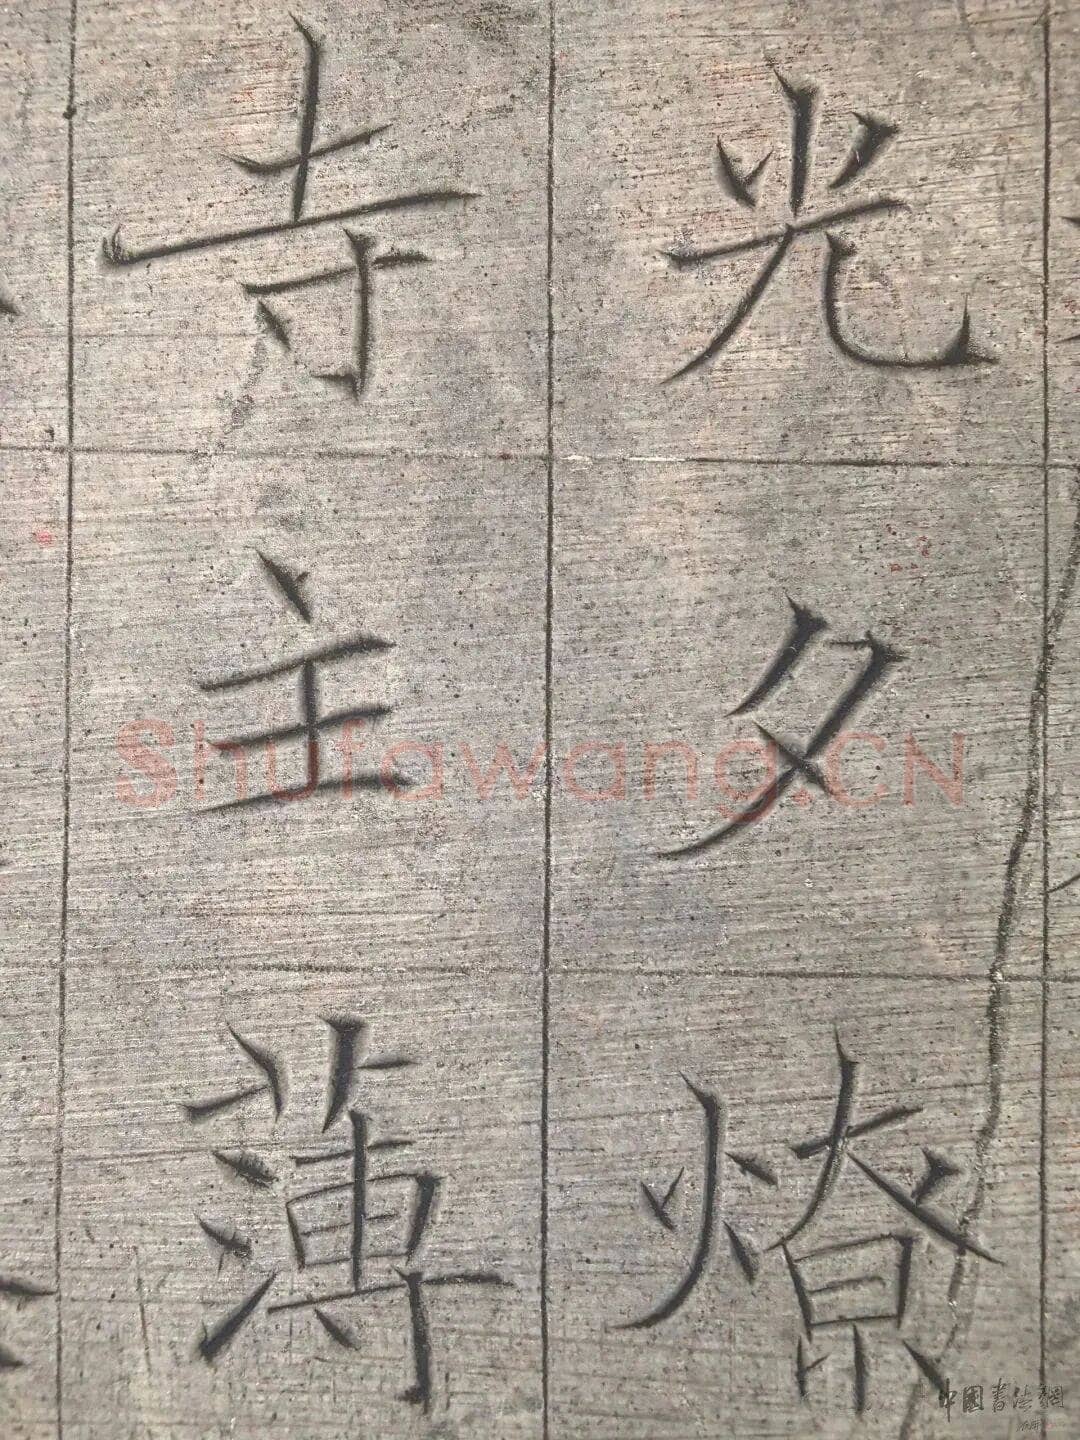 光夕燎
寺主薄
Shufawang.CN
中國書法網